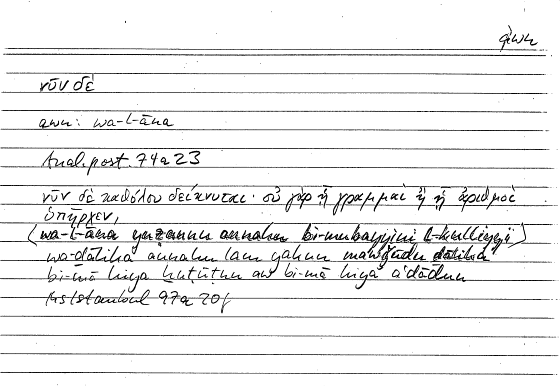 νῦν δέ
awn: wa-l-āna
Anal. post. 74a23
νῦν δὲ καθόλου δείκνυται· οὐ γὰρ ᾗ γραμμαὶ ἢ ᾗ ἀριθμοὶ
ὑπῆρχεν,
(wa-l-āna yuẓannu annahu bi-mubayyini l-kullīyi)
wa-ḏālika annahu lam yakun mawǧūdu ḏālika
bi-mā hiya ḫuṭūṭun aw bi-mā hiya aʿdādun
Ms Istanbul 97a 20f